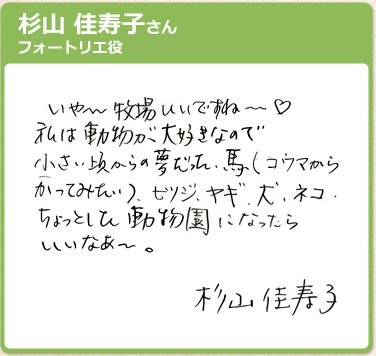 杉山 佳寿子さん
フォートリエ役
いや〜牧場いいですね〜♡
私は動物が大好きなので
小さい頃からの夢だった、馬(コウマから
かってみたい)、ヒツジ、ヤギ、犬、ネコ、
ちょっとした動物園になったら
いいなあ〜。
杉山佳寿子